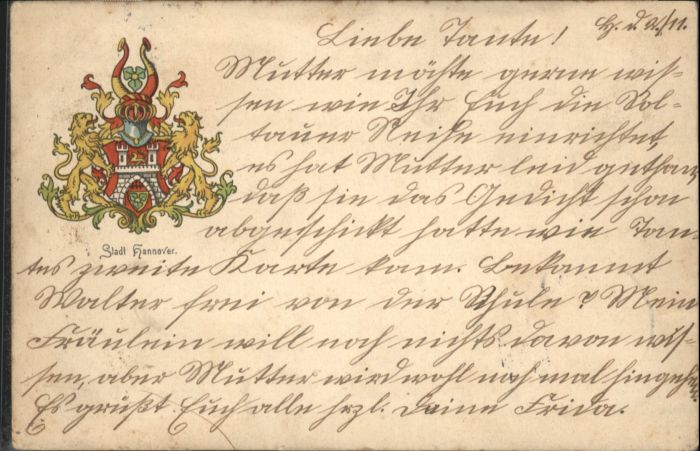 H. d. 2./11.
Liebe Tante!
Mutter möhte gerne wis-
sen wie Ihr Euch die Sol-
tauer Reise einrichtet,
es hat Mutter leid gethan,
daß sie das Gedicht schon
abgeschickt hatte wie Tan-
tes zweite Karte kam. Bekommt
Walter frei von der Schule? Mein
Fräulein will noch nichts davon wis-
sen, aber Mutter wird wohl noch mal hingehen.
Es grüßt Euch alle hrzl. Deine Frida.
Stadt Hannover.